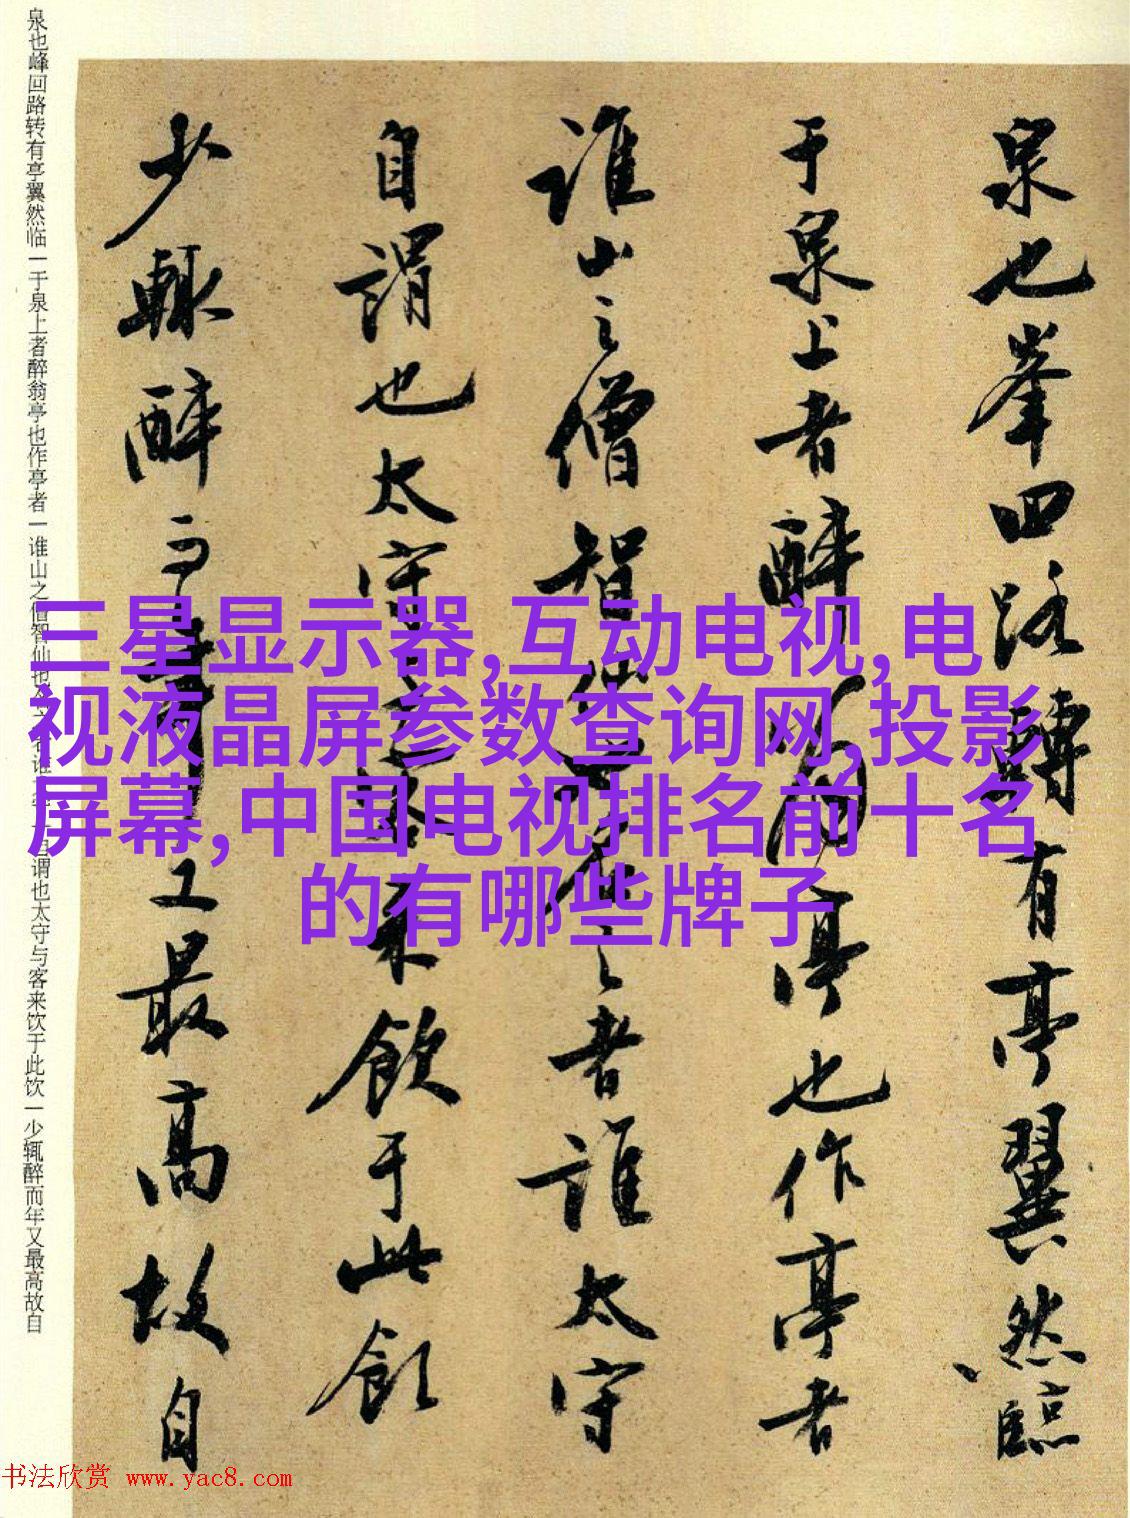 三星显示器,互动电视,电
视液晶屏参数查询网,投影
屏幕,中国电视排名前十名
的有哪些牌子
泉也峯回路轉有亭翼然臨
于泉上者醉翁亭也作亭者
誰山之僧智僊也名之者誰太守
自謂也太守與客來飲于此飲
少輒醉而年又最高故自
泉也峰回路转有亭翼然临一于泉上者醉翁亭也作亭者一谁山之僧智仙也名之者谁太守一自谓也太守与客来饮于此饮一少辄醉而年又最高故自
书法欣赏 www.yac8.com